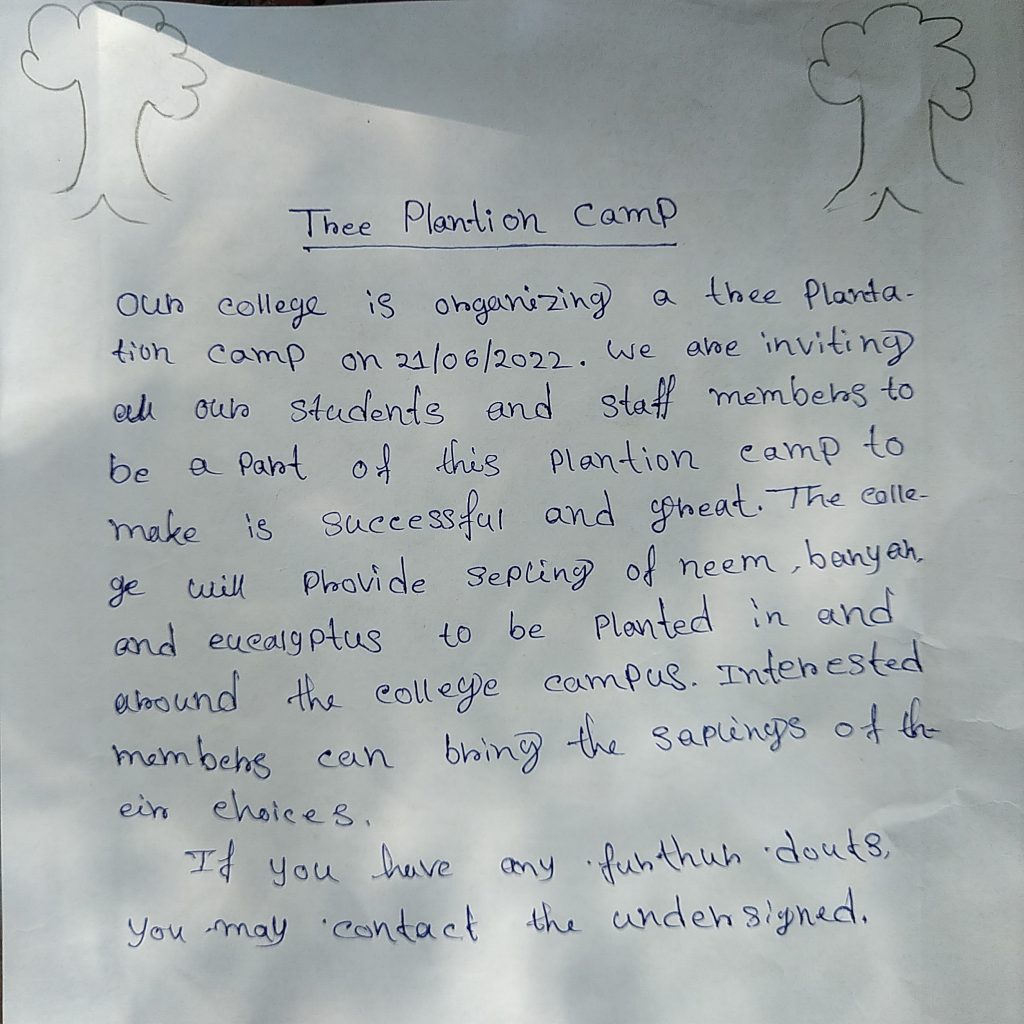 Tree Plantion Camp
Our college is organizing a tree Planta-
tion camp on 21/06/2022. We are inviting
all our students and staff members to
be a Part of this Plantion camp to
make is successful and great. The colle-
ge will Provide sepling of neem, banyan,
and eucalgptus to be Planted in and
around the college campus. Interested
members can bring the saplings of th-
eir choices.
If you have any furthur douts,
you may contact the undersigned.